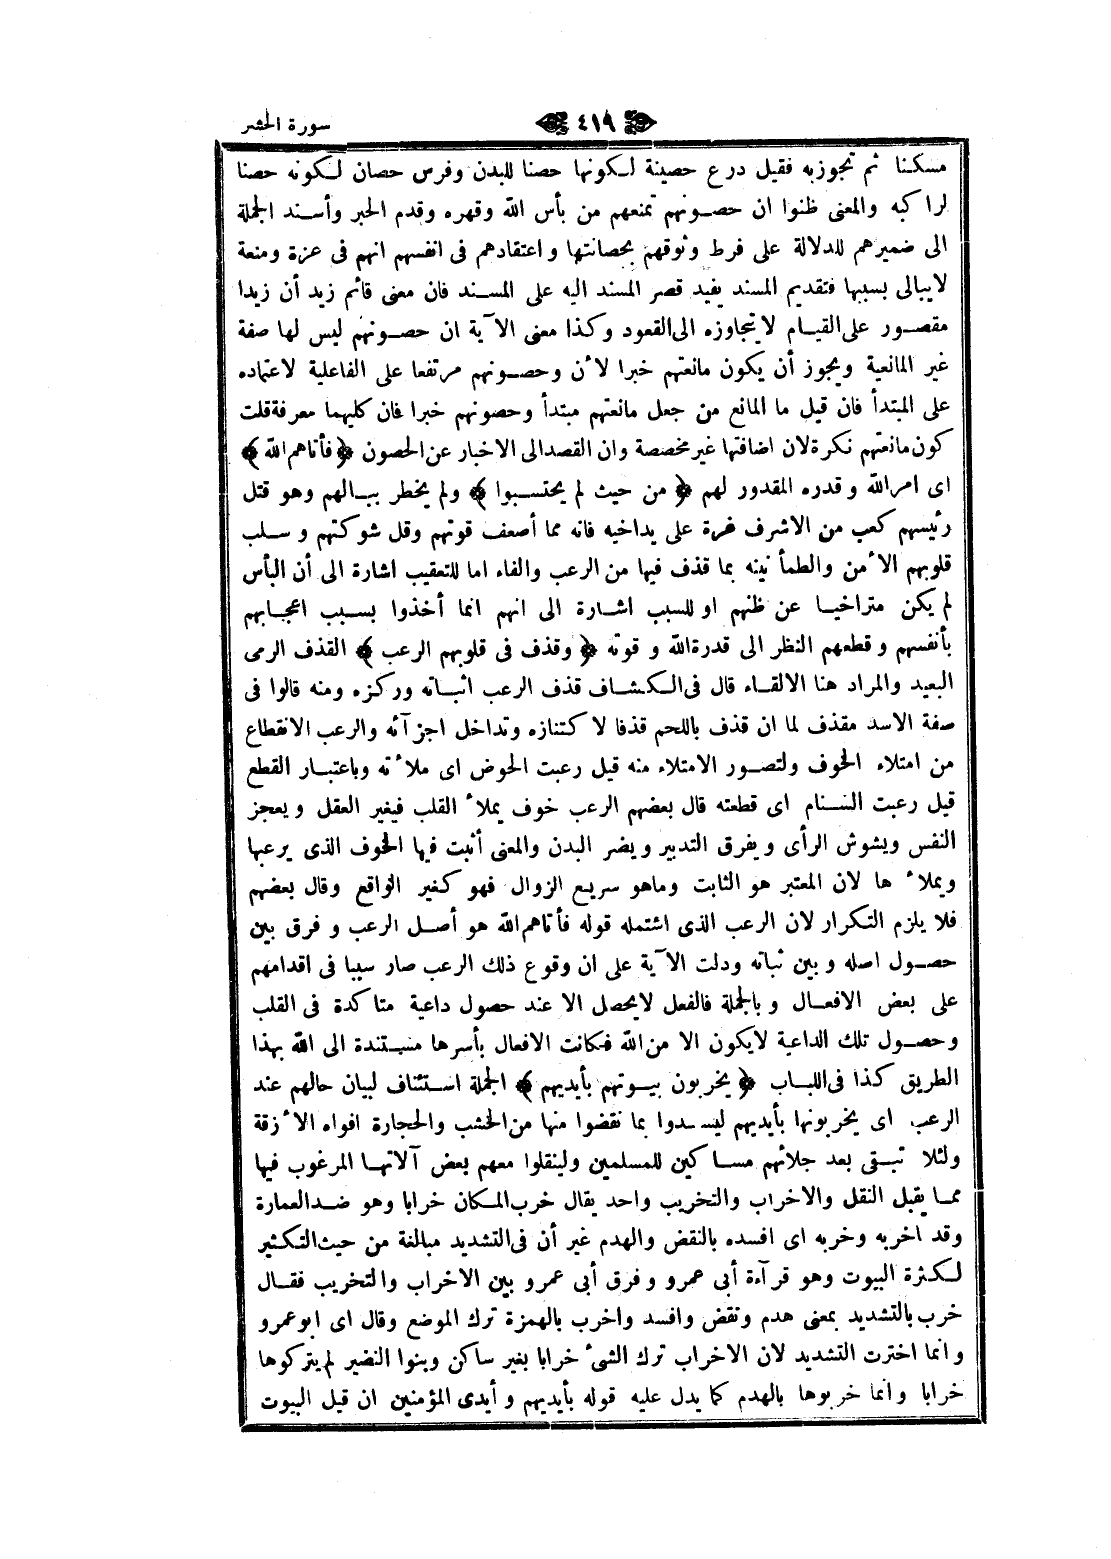 سورة الحشر
٤١٩
مسكنا ثم تجوزبه فقيل درع حصينة لكونها حصنا للبدن وفرس حصان لكونه حصنا
لراكبه والمعنى ظنوا ان حصونهم تمنعهم من بأس الله وقهره وقدم الخبر وأسند الجملة
الى ضميرهم للدلالة على فرط وثوقهم بحصانتها واعتقادهم فى انفسهم انهم فى عزة ومنعة
لايبالى بسببها فتقديم المسند يفيد قصر المسند اليه على المسند فان معنى قائم زيد أن زيدا
مقصور على القيام لا يتجاوزه الى القعود وكذا معنى الآية ان حصونهم ليس لها صفة
غير المانعية ويجوز أن يكون مانعتهم خبرا لأن وحصونهم مرتفعا على الفاعلية لاعتماده
على المبتدأ فان قيل ما المانع من جعل مانعتهم مبتدأ وحصونهم خبرا فان كليهما معرفة قلت
كون مانعتهم نكرة لان اضافتها غير مخصصة وان القصد الى الاخبار عن الحصون ﴿ فأتاهم الله ﴾
اى امر الله وقدره المقدور لهم ﴿ من حيث لم يحتسبوا ﴾ ولم يخطر ببالهم وهو قتل
رئيسهم كعب من الاشرف غرة على يداخيه فانه مما أضعف قوتهم وقل شوكتهم وسلب
قلوبهم الأمن والطمأنينه بما قذف فيها من الرعب والفاء اما للتعقيب اشارة الى أن البأس
لم يكن متراخيا عن ظنهم او للسبب اشارة الى انهم انما أخذوا بسبب اعجابهم
بأنفسهم وقطعهم النظر الى قدرة الله وقوته ﴿ وقذف فى قلوبهم الرعب ﴾ القذف الرمى
البعيد والمراد هنا الالقاء قال فى الكشاف قذف الرعب اثباته وركزه ومنه قالوا فى
صفة الاسد مقذف لما ان قذف باللحم قذفا لاكتنازه وتداخل اجزآئه والرعب الانقطاع
من امتلاء الخوف ولتصور الامتلاء منه قيل رعبت الحوض اى ملأته وباعتبار القطع
قيل رعبت السنام اى قطعته قال بعضهم الرعب خوف يملأ القلب فيغير العقل ويعجز
النفس ويشوش الرأى ويفرق التدبير ويضر البدن والمعنى أثبت فيها الخوف الذى يرعبها
ويملأ ها لان المعتبر هو الثابت وماهو سريع الزوال فهو كغير الواقع وقال بعضهم
فلا يلزم التكرار لان الرعب الذى اشتمله قوله فأتاهم الله هو أصل الرعب وفرق بين
حصول اصله وبين ثباته ودلت الآية على ان وقوع ذلك الرعب صار سببا فى اقدامهم
على بعض الافعال وبالجملة فالفعل لايحصل الا عند حصول داعية متاكدة فى القلب
وحصول تلك الداعية لايكون الا من الله فكانت الافعال بأسرها مستندة الى الله بهذا
الطريق كذا فى اللباب ﴿ يخربون بيوتهم بأيديهم ﴾ الجملة استئناف لبيان حالهم عند
الرعب اى يخربونها بأيديهم ليسدوا بما نقضوا منها من الخشب والحجارة افواه الأزقة
ولئلا تبقى بعد جلائهم مساكين للمسلمين ولينقلوا معهم بعض آلاتها المرغوب فيها
مما يقبل النقل والاخراب والتخريب واحد يقال خرب المكان خرابا وهو ضد العمارة
وقد اخربه وخربه اى افسده بالنقض والهدم غير أن فى التشديد مبالغة من حيث التكثير
لكثرة البيوت وهو قرآءة أبى عمرو وفرق أبى عمرو بين الاخراب والتخريب فقال
خرب بالتشديد بمعنى هدم ونقض وافسد واخرب بالهمزة ترك الموضع وقال اى ابو عمرو
وانما اخترت التشديد لان الاخراب ترك الشئ خرابا بغير ساكن وبنوا النضير لم يتركوها
خرابا وانما خربوها بالهدم كما يدل عليه قوله بأيديهم وأيدى المؤمنين ان قيل البيوت